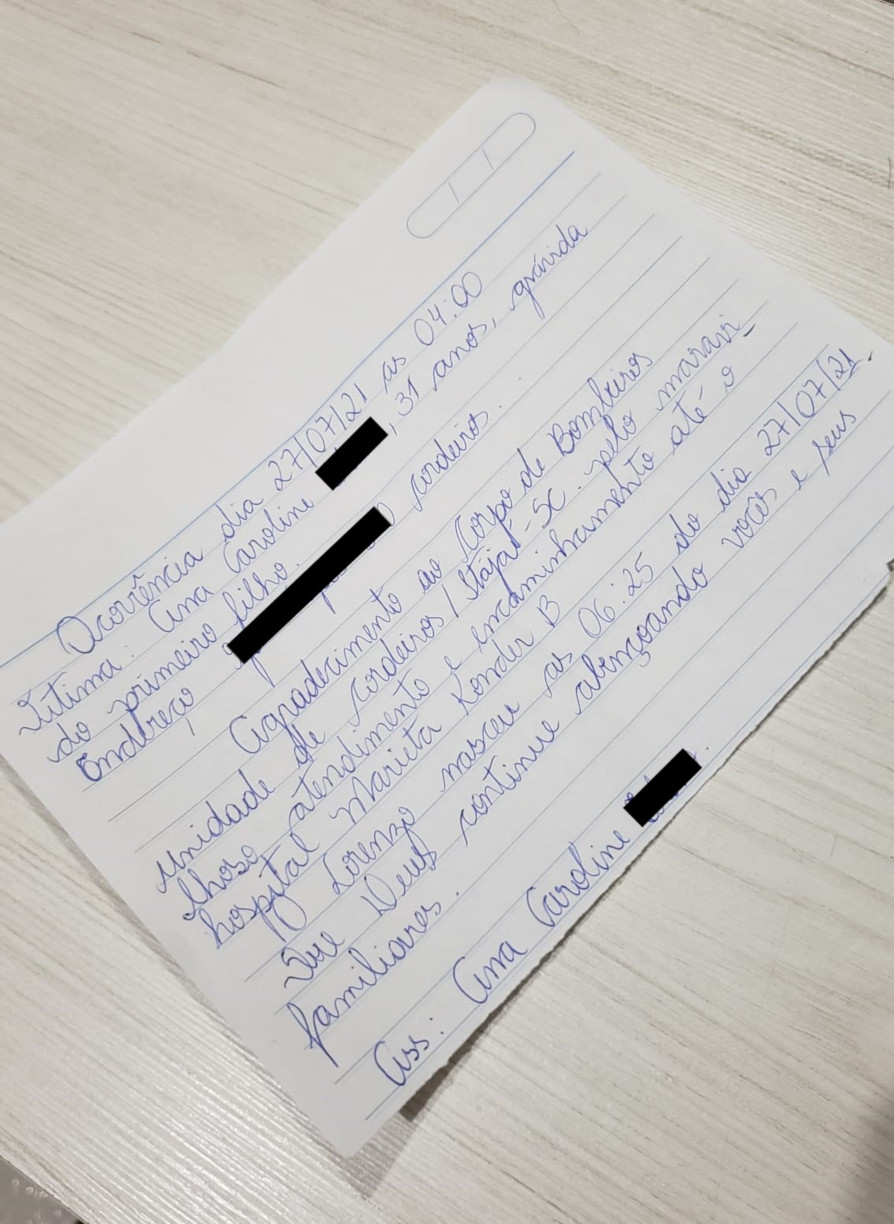 Ocorrência dia 27/07/21 as 04:00
Vítima: Ana Caroline , 31 anos, grávida
do primeiro filho.
Endereço cordeiros.
Agradecimento ao Corpo de Bombeiros
unidade de Cordeiros / Itajaí - SC. pelo maravi-
lhoso atendimento e encaminhamento até o
hospital Marieta Konder B
O Lorenzo nasceu as 06:25 do dia 27/07/21.
Que Deus continue abençoando vocês e seus
familiares.
Ass: Ana Caroline